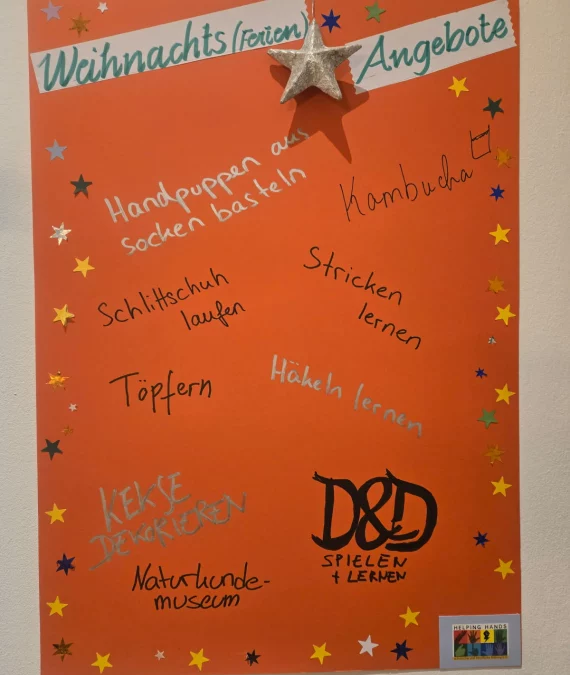 Weihnachts (Ferien) Angebote
Handpuppen aus
socken basteln
Kambucha
Schlittschuh
laufen
Stricken
lernen
Töpfern
Häkeln lernen
KEKSE
DEKORIEREN
D&D
SPIELEN
+ LERNEN
Naturkunde-
museum
HELPING HANDS